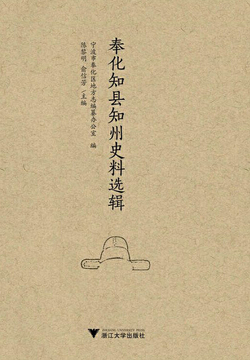 奉化知县知州史料选辑
宁波市奉化区地方志编纂办公室 编
陈黎明 俞信芳/主编
浙江大学出版社
ZHEJIANG UNIVERSITY PRESS